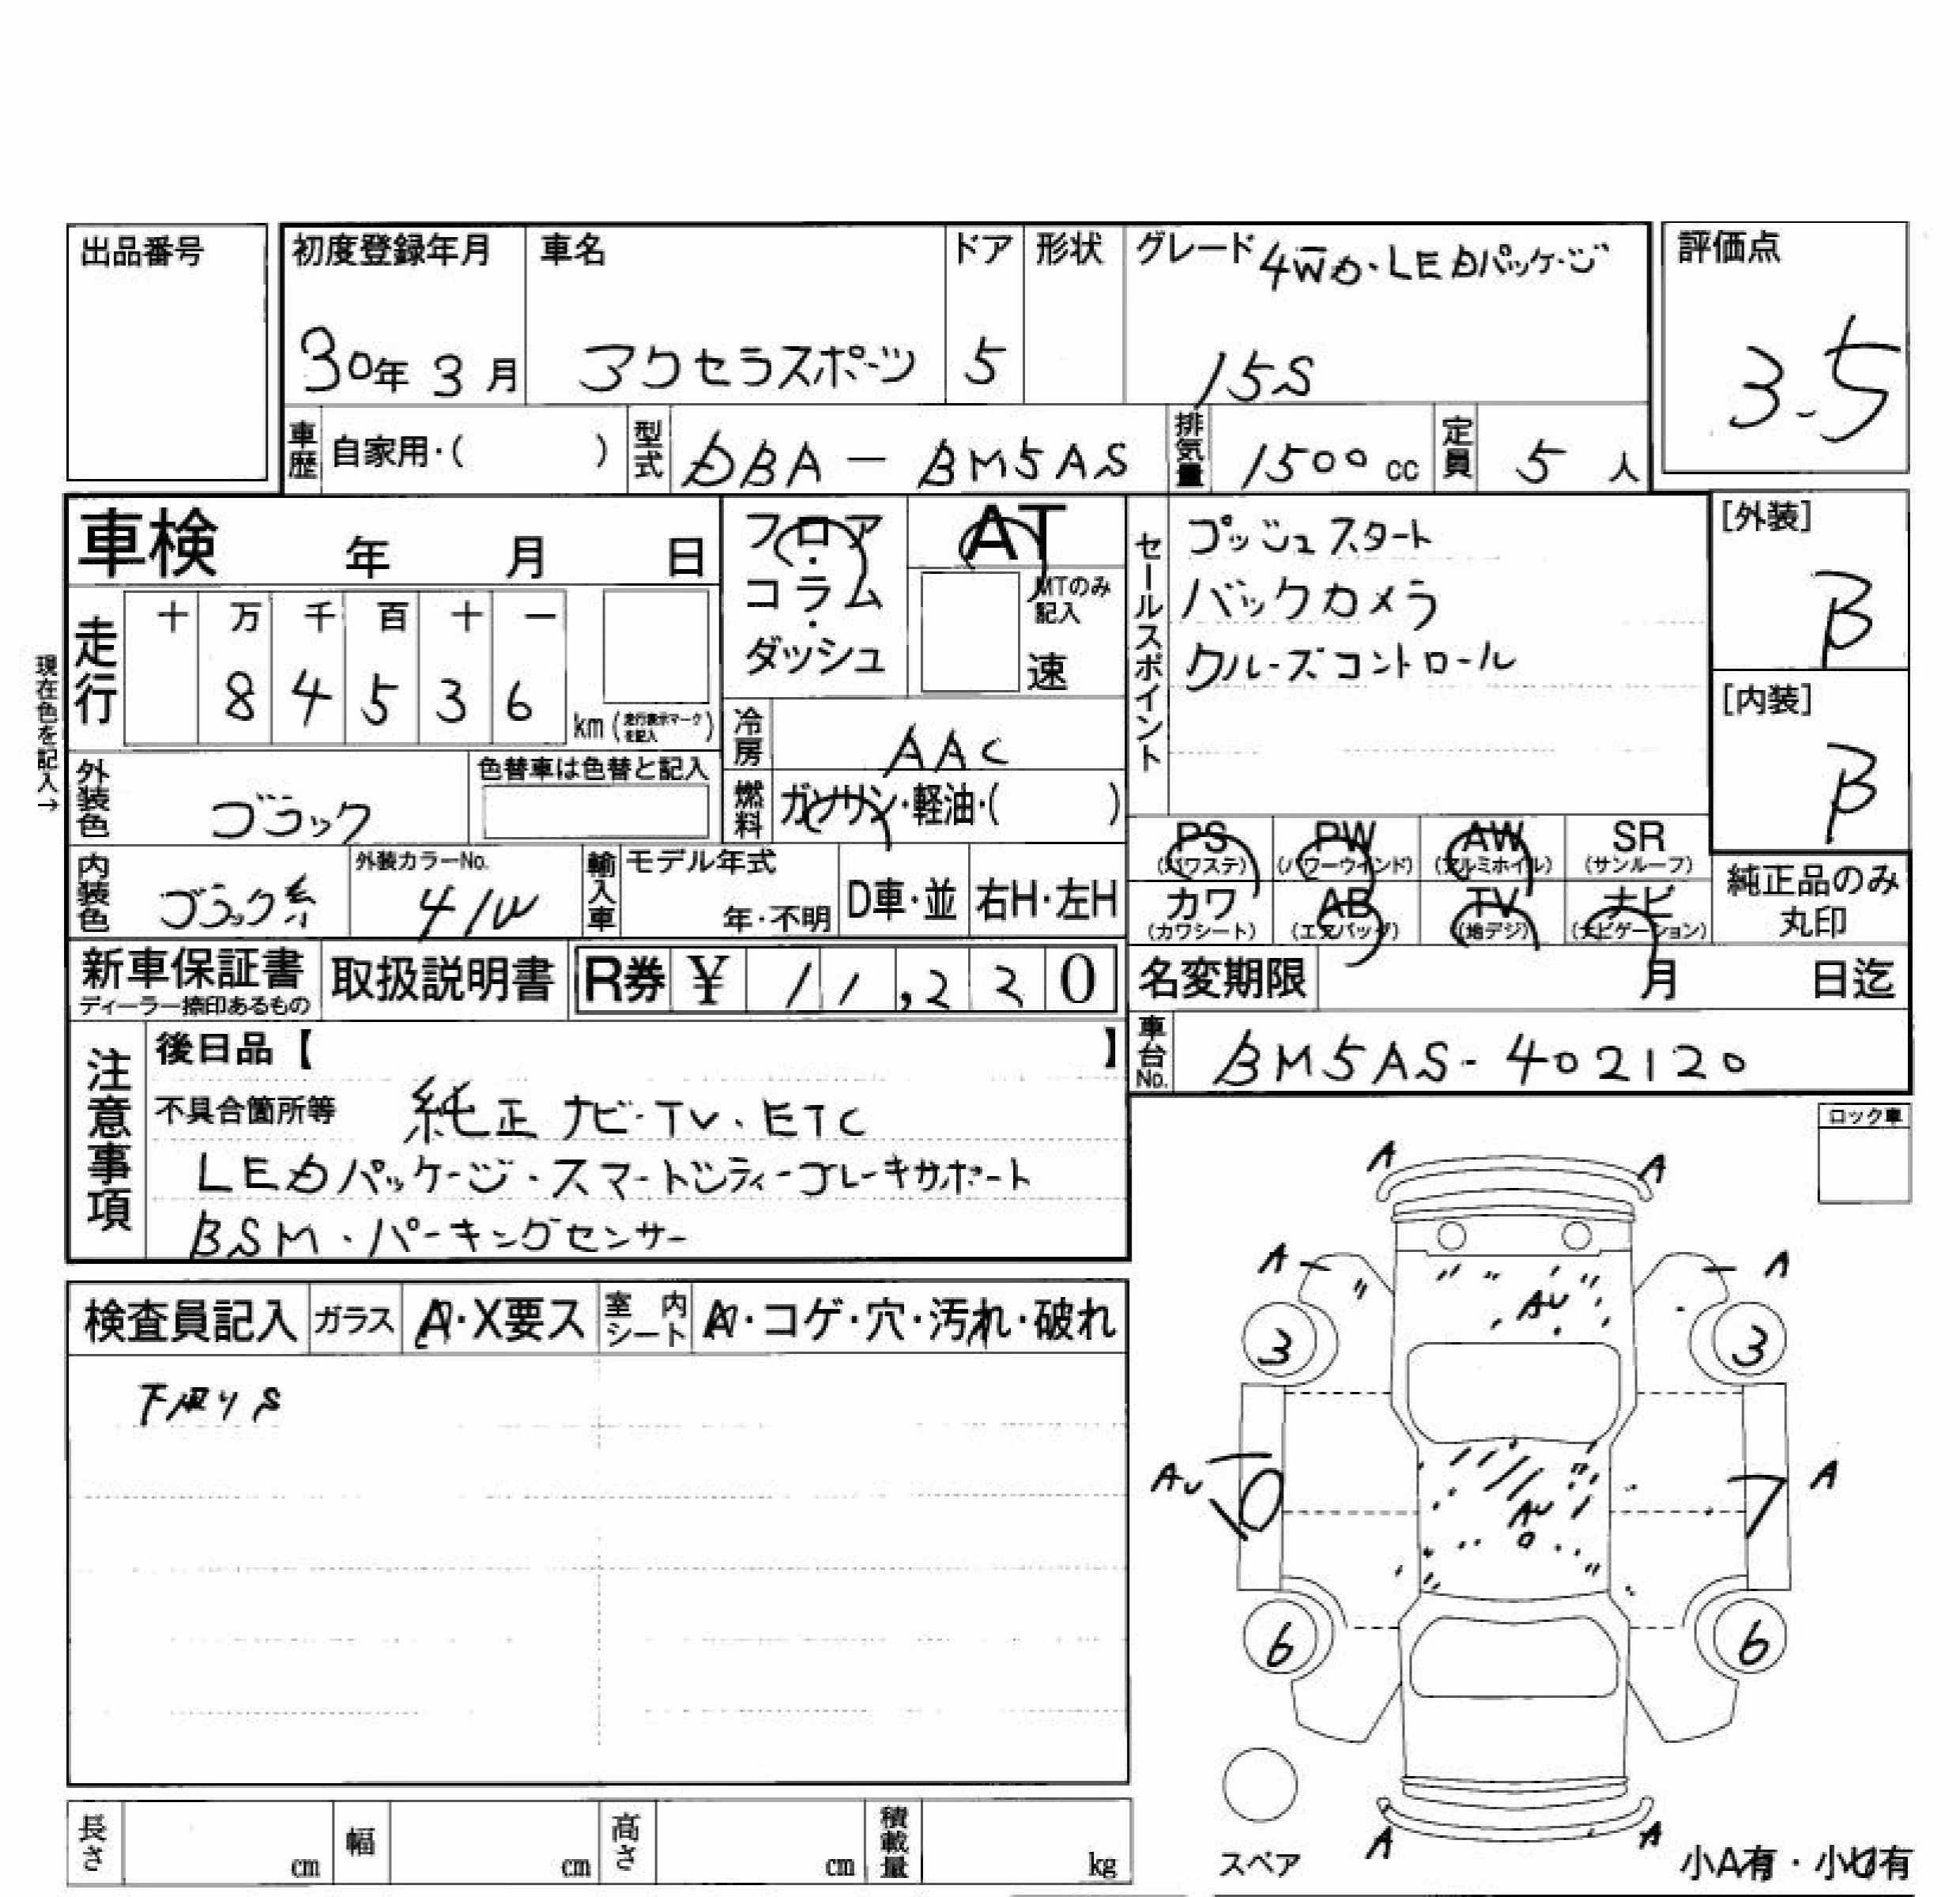 出品番号
初度登録年月 車名 ドア 形状 グレード 4WD・LEDパッケージ 評価点
30年 3月 アクセラスポーツ 5 15S 3.5
車歴 自家用・( ) 型式 DBA-BM5AS 排気量 1500cc 定員 5人
車検 年 月 日
フロア・コラム・ダッシュ
AT
MTのみ記入
速
セールスポイント
プッシュスタート
バックカメラ
クルーズコントロール
[外装]
B
[内装]
B
現在色を記入→
走行 十 万 千 百 十 一
8 4 5 3 6 km (走行表示マークを記入)
冷房 AAC
外装色 ブラック 色替車は色替と記入
燃料 ガソリン・軽油・( )
内装色 ブラック系 外装カラーNo. 41W 輸入車 モデル年式 年・不明 D車・並 右H・左H
PS (パワステ) PW (パワーウインド) AW (アルミホイル) SR (サンルーフ)
カワ (カワシート) AB (エアバッグ) TV (地デジ) ナビ (ナビゲーション)
純正品のみ
丸印
新車保証書 ディーラー捺印あるもの 取扱説明書 R券 ¥ 11,220
名変期限 月 日迄
車台No. BM5AS-402120
注意事項
後日品【 】
不具合箇所等 純正ナビ・TV・ETC
LEDパッケージ・スマートシティーブレーキサポート
BSM・パーキングセンサー
ロック車
検査員記入 ガラス A・X要ス 室内シート A・コゲ・穴・汚れ・破れ
下廻りS
A A
A A
AU
3 3
AU A
AU
6 6
スペア
A A
小A有・小U有
長さ cm 幅 cm 高さ cm 積載量 kg